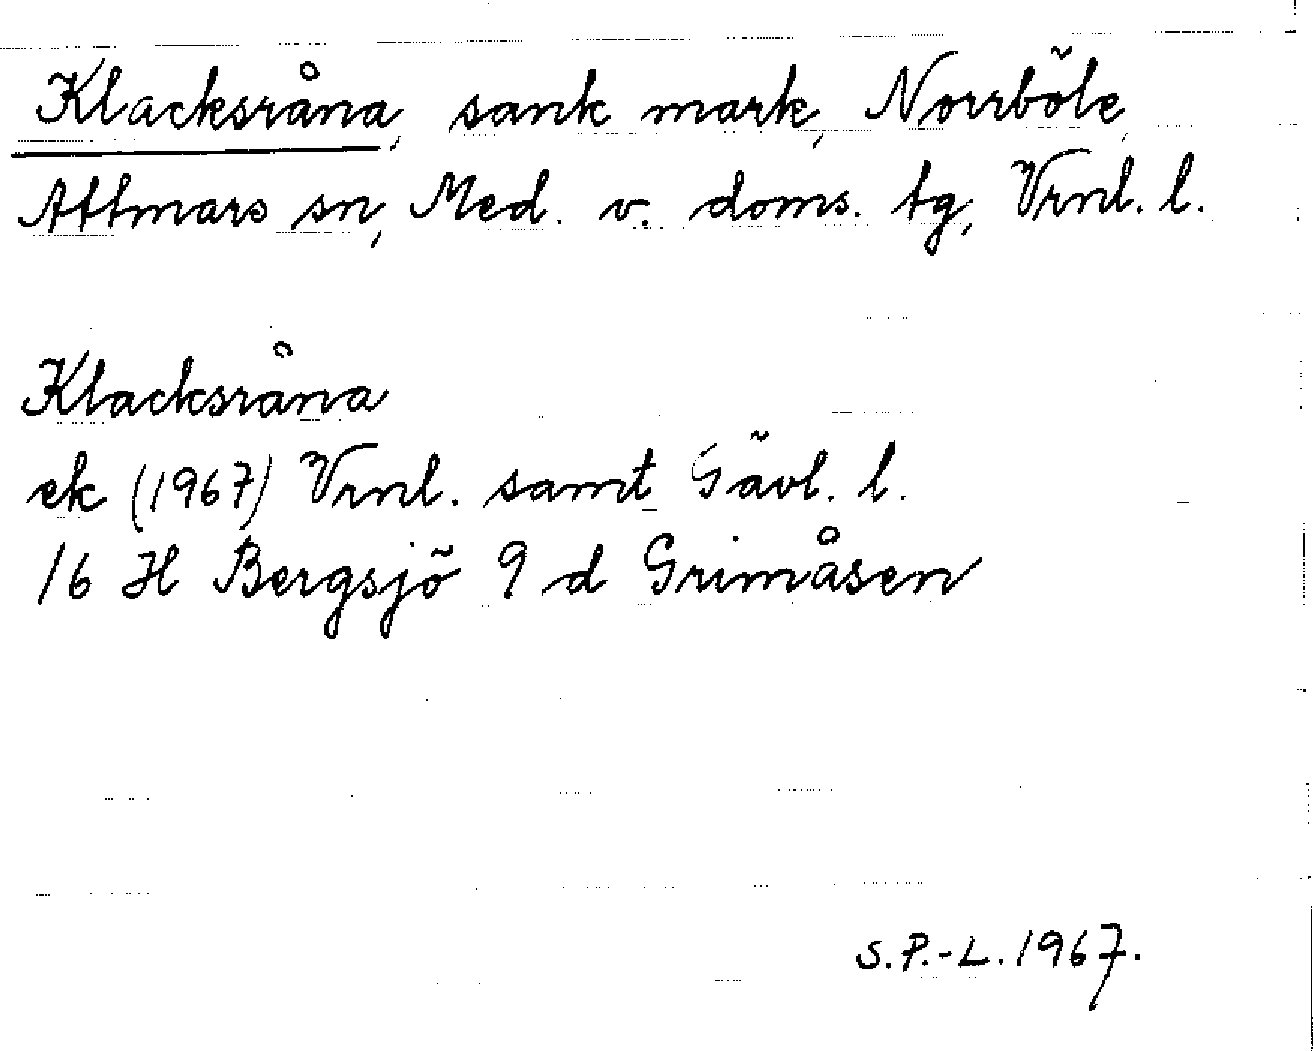 Klacksråna, sank mark, Norrböle,
Attmars sn, Med. v. doms. tg, Vrnl. l.
Klacksråna
ek (1967) Vrnl. samt Gävl. l.
16 H Bergsjö 9 d Grimåsen
S.P.-L. 1967.